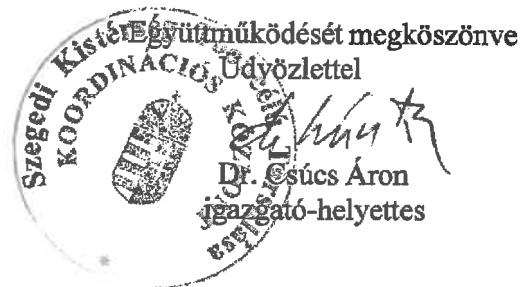 Együttműködését megköszönve
Üdvözlettel
Dr. Csúcs Áron
igazgató-helyettes
Szegedi Kistérség Társulása
KOORDINÁCIÓS KÖZPONT